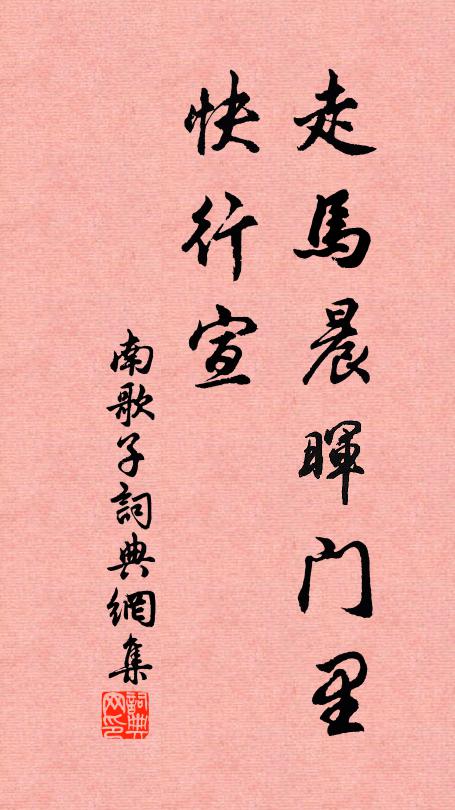 走馬晨暉门里
快行宣
南歌子詞典網集
詞典网印